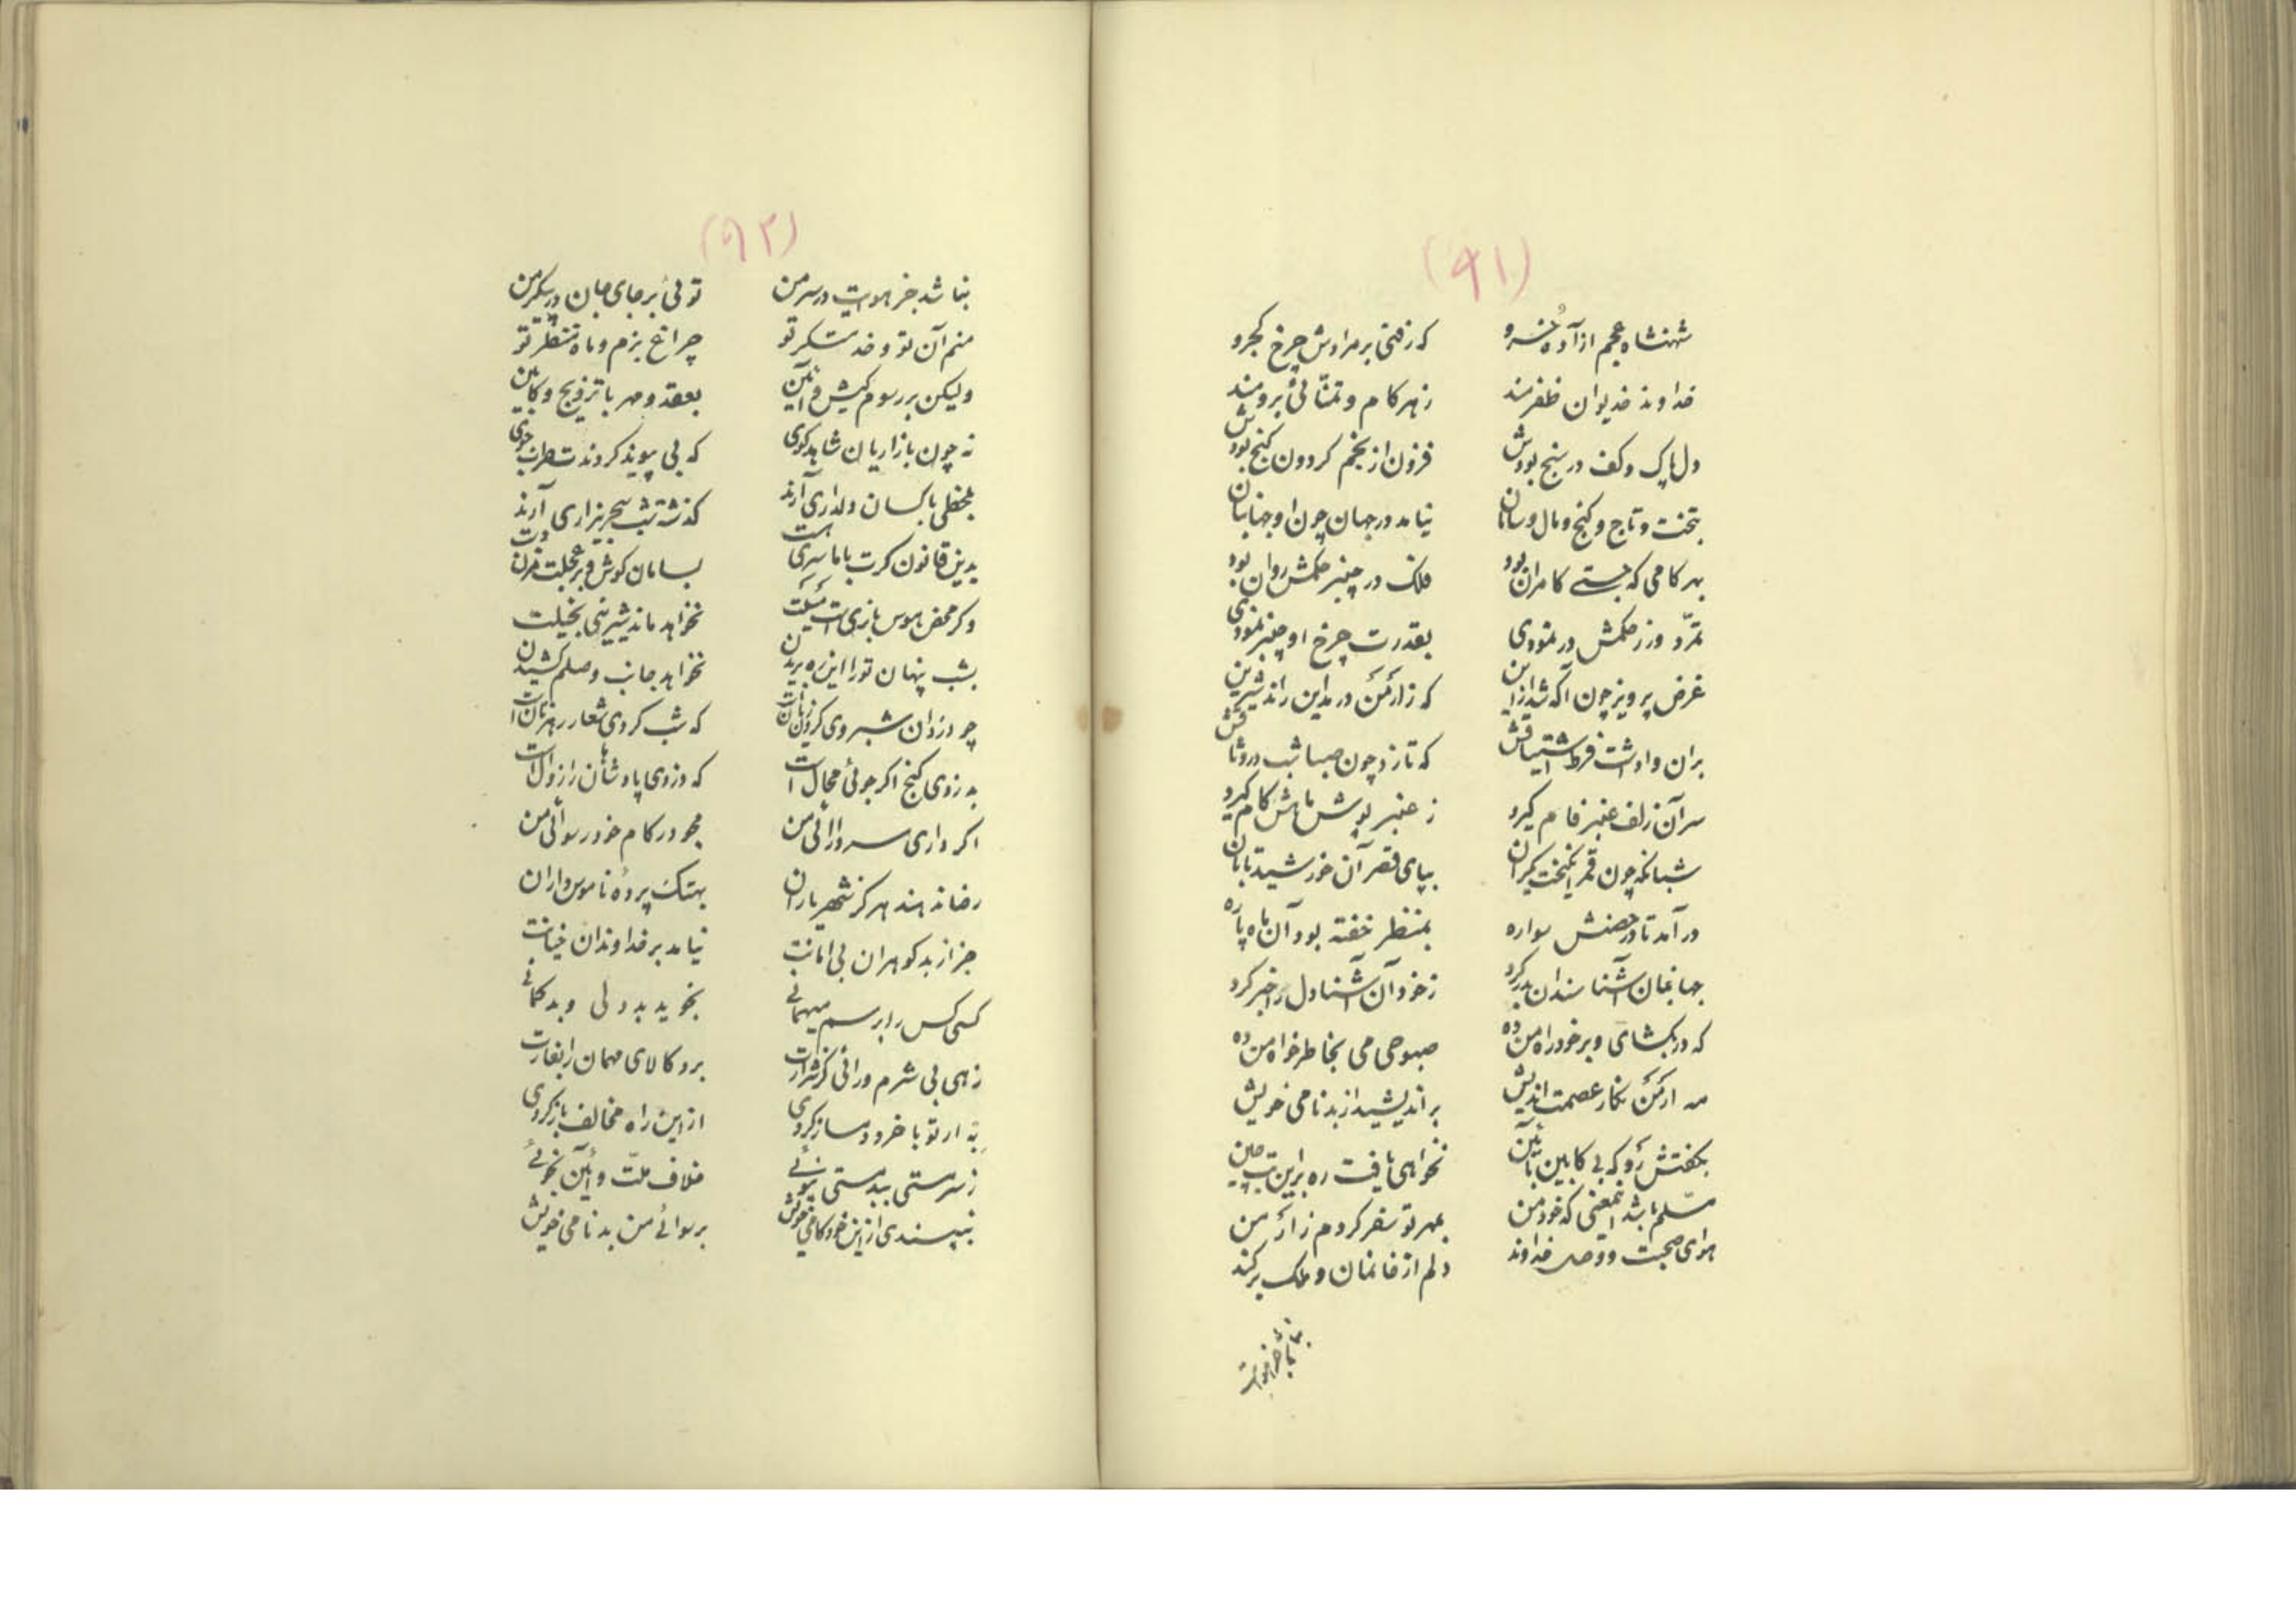 (۹۱)
شهنشاه عجم از آده خسرو که رفتی بر مرادش چرخ کجرو
خداوند خدیوان ظفرمند زهر کام و تمنائی برومند
دل پاک و کف در سنج بودش فزون از نجم کردون کنج بودش
بتخت و تاج و کنج و مال و سامان نیامد در جهان چون او جهانبان
بهر کامی که جستی کامران بود فلک در چنبر حکمش روان بود
تمرّد ور ز حکمش در نمودی بقدرت چرخ او چنبر نمودی
غرض پرویز چون آکه شد از این که ز ارمن در مداین راند شیرین
بران واداشت فرط اشتیاقش که تازد چون صبا شب در وثاقش
سر آن زلف عنبر فام کیرد ز عنبر پوش ماهش کام کیرد
شبانکه چون قمر انکیخت یکران بپای قصر آن خورشید تابان
در آمد تا در حصنش سواره بمنظر خفته بود آن ماه پاره
جهانبان آشنا سندان بدر کرد ز خود آن آشنا دل را خبر کرد
که در بکشای و بر خود راه من ده صبوحی می بخاطر خواه من ده
مه ارمن نکار عصمت اندیش بر اندیشید از بدنامی خویش
بکفتش رو که بی کابین و آئین نخواهی یافت ره بر این بت چین
مسلم باشد اینمعنی که خود من بمهر تو سفر کردم ز ارمن
هوای صحبت و وصل خداوند دلم از خانمان و ملک بر کند
نباشد جز هوایت
(۹۲)
نباشد جز هوایت در سر من توئی بر جای جان در پیکر من
منم آن تو و خدمتکر تو چراغ بزم و ماه منظر تو
ولیکن بر رسوم کیش و آئین بعقد و مهر با تزویج و کابین
نه چون بازاریان شاهد کوی که بی پیوند کردندت طرب جوی
بمحفلی با کسان دلداری آرند کذشته شب سحر بیزاری آرند
بدین قانون کرت با ما سری هست بسامان کوش و بر عجلت مزن دست
وکر محض هوس بازیست میلت نخواهد ماند شیرینی بخیلت
بشب پنهان تو را این ره بریدن نخواهد جانب وصلم کشیدن
چو دزدان شبروی کردن زیانست که شب کردی شعار رهزنان است
بدزدی کنج اکر جوئی محال است که دزدی پادشاهان را زوال است
اکر داری سر و ارائی من مجو در کام خود رسوائی من
رضا ندهند هرکز شهریاران بهتک پرده ناموس داران
جز از بد کوهران بی امانت نیامد بر خداوندان خیانت
کسی کس را برسم میهمانی نخوید بددلی و بدکمانی
زهی بی شرم و رائی کز شرارت برد کالای مهمان را بغارت
به ار تو با خرد دمساز کردی از این راه مخالف باز کردی
ز سرمستی ببدمستی نپوئی خلاف ملّت و آئین نجوئی
نپسندی از این خودکامی خویش برسوائی من بدنامی خویش